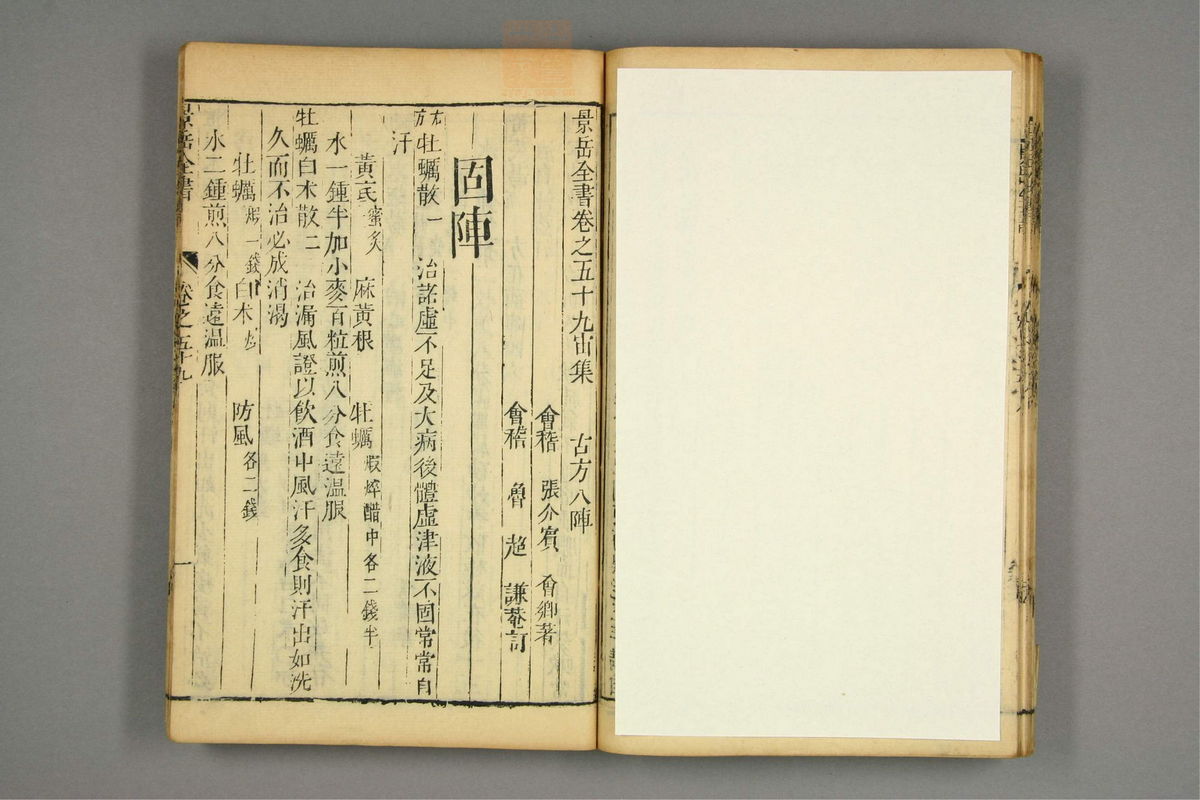 景岳全書卷之五十九宙集 古方八陣
會稽 張介賓 會卿著
會稽 魯超 謙菴訂
固陣
古方 牡蠣散一 治諸虛不足及大病後體虛津液不固常常自
汗
黃芪蜜炙 麻黃根 牡蠣煆焠醋中各二錢半
水一鍾半加小麥百粒煎八分食遠溫服
牡蠣白朮散二 治漏風證以飲酒中風汗多食則汗出如洗
久而不治必成消渴
牡蠣煆一錢 白朮 防風各二錢
水二鍾煎八分食遠溫服
景岳全書 卷之五十九 一